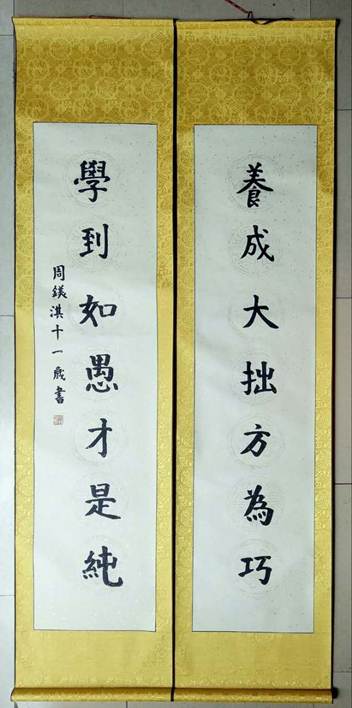 養成大拙方為巧
學到如愚才是純
周鎂淇十一歲書